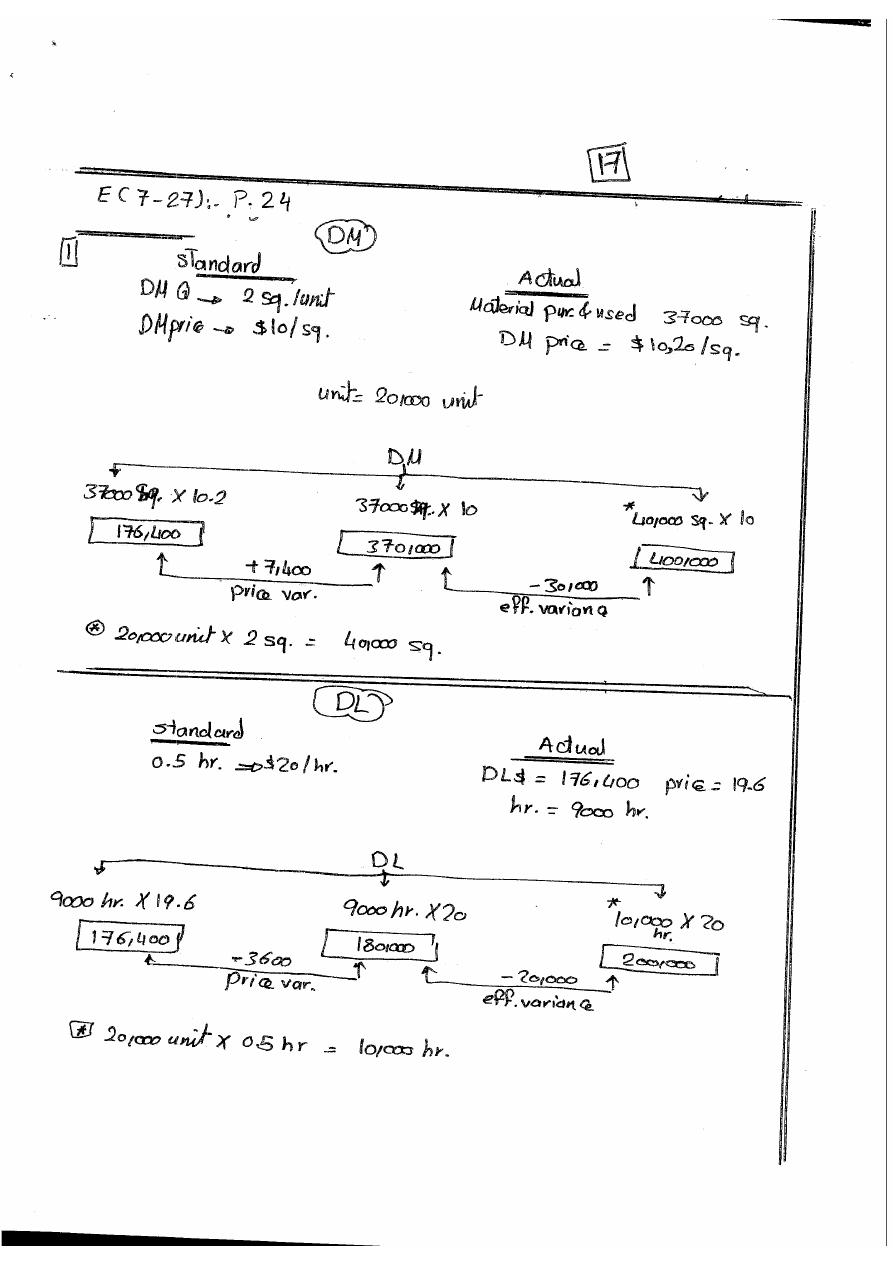 17
E(7-27):- P. 24
DM
1
Standard
Actual
DM Q → 2 sq./unit
Material pur. & used 37000 sq.
DM price → $10/sq.
DM price = $10,20/sq.
unit = 20,000 unit
DM
37000 sq. X 10.2
37000 sq. X 10
*40,000 sq. X 10
176,400
370,000
400,000
+7,400
price var.
-30,000
eff. variance
* 20,000 unit X 2 sq. = 40,000 sq.
DL
Standard
Actual
0.5 hr. ⇒ $20/hr.
DL$ = 176,400 price = 19.6
hr. = 9000 hr.
DL
9000 hr. X 19.6
9000 hr. X 20
*10,000 X 20
hr.
176,400
180,000
200,000
-3600
price var.
-20,000
eff. variance
* 20,000 unit X 0.5 hr = 10,000 hr.